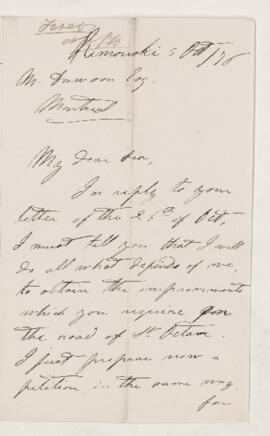 Rimouski 5 Oct/76
Mr. Dawson Esq.
Montreal
My dear Sir,
In reply to your
letter of the 26th of Oct,
I must tell you that I will
do all what depends of me,
to obtain the improvements
which you require on
the road of St. Octave.
I just prepare now a
petition in the same way,
for